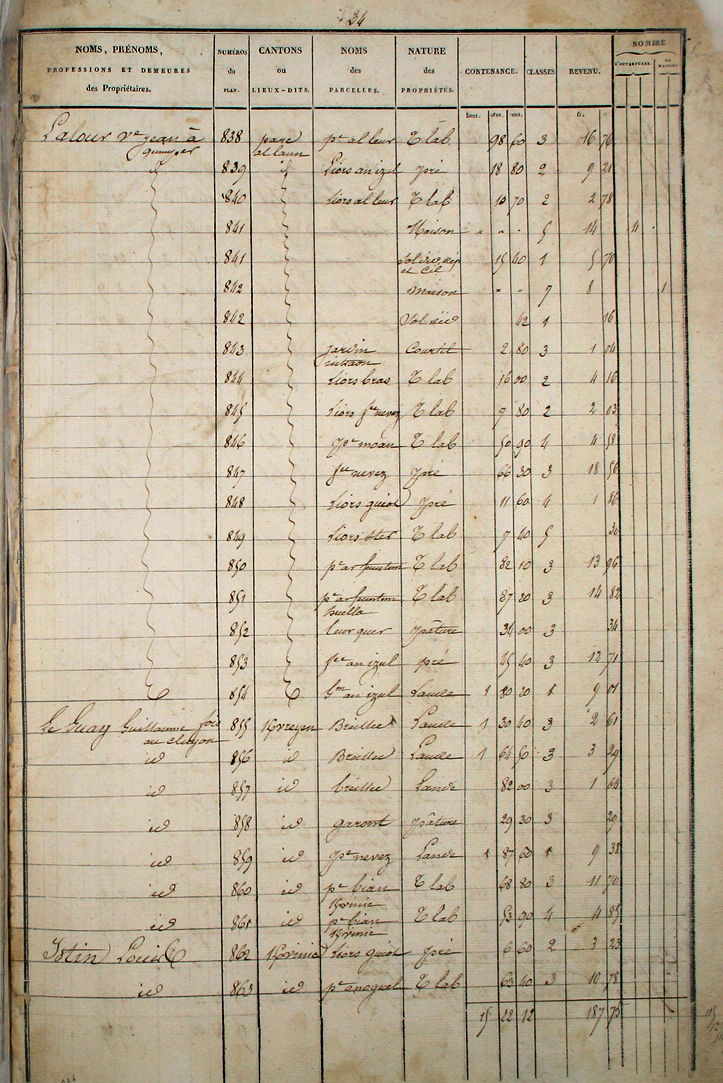 34
NOMS, PRÉNOMS, PROFESSIONS ET DEMEURES des Propriétaires. NUMÉROS du PLAN. CANTONS ou LIEUX-DITS. NOMS des PARCELLES. NATURE des PROPRIÉTÉS. CONTENANCE. CLASSES. REVENU. NOMBRE D'OUVERTURES
hect. ares. cent. fr.
Latour Ve jean à 838 parc pc al leur T lab 98 60 3 16 76
quimper al lann
id 839 id Liors an izel pré 18 80 2 9 21
840 liors al leur T lab 10 70 2 2 78
841 Maison " " " 5 14 4
841 15 40 1 5 76
et
842 maison " " 7 8 1
842 Sol 42 1 16
843 jardin Courtil 2 80 3 1 04
844 Liors bras T lab 16 00 2 4 16
845 liors fte nevez T lab 9 80 2 2 03
846 moan T lab 50 90 4 4 58
847 fte nevez pré 66 30 3 18 56
848 liors quiot pré 11 60 4 1 86
849 liors ster T lab 7 40 5 30
850 pc ar feunten T lab 82 10 3 13 96
851 pc ar feunten T lab 87 20 3 14 82
huella
852 leur guer pâture 34 00 3 34
853 fte an izel pré 45 40 3 12 71
854 an izel Lande 1 80 20 1 9 01
Le Guay Guillaume fois 855 Breillec Lande 1 30 40 3 2 61
au cleuyou
id 856 id Breillec Lande 1 64 50 3 3 29
id 857 id breillec Lande 82 00 3 1 64
id 858 id garont pâture 29 30 3 29
id 859 id pc nevez Lande 1 87 60 1 9 38
id 860 id pc bian T lab 68 80 3 11 70
id 861 id pc bian T lab 53 90 4 4 85
Istin Louis 862 liors quiot pré 6 60 2 3 23
id 863 id T lab 63 40 3 10 78
15 22 12 187 75